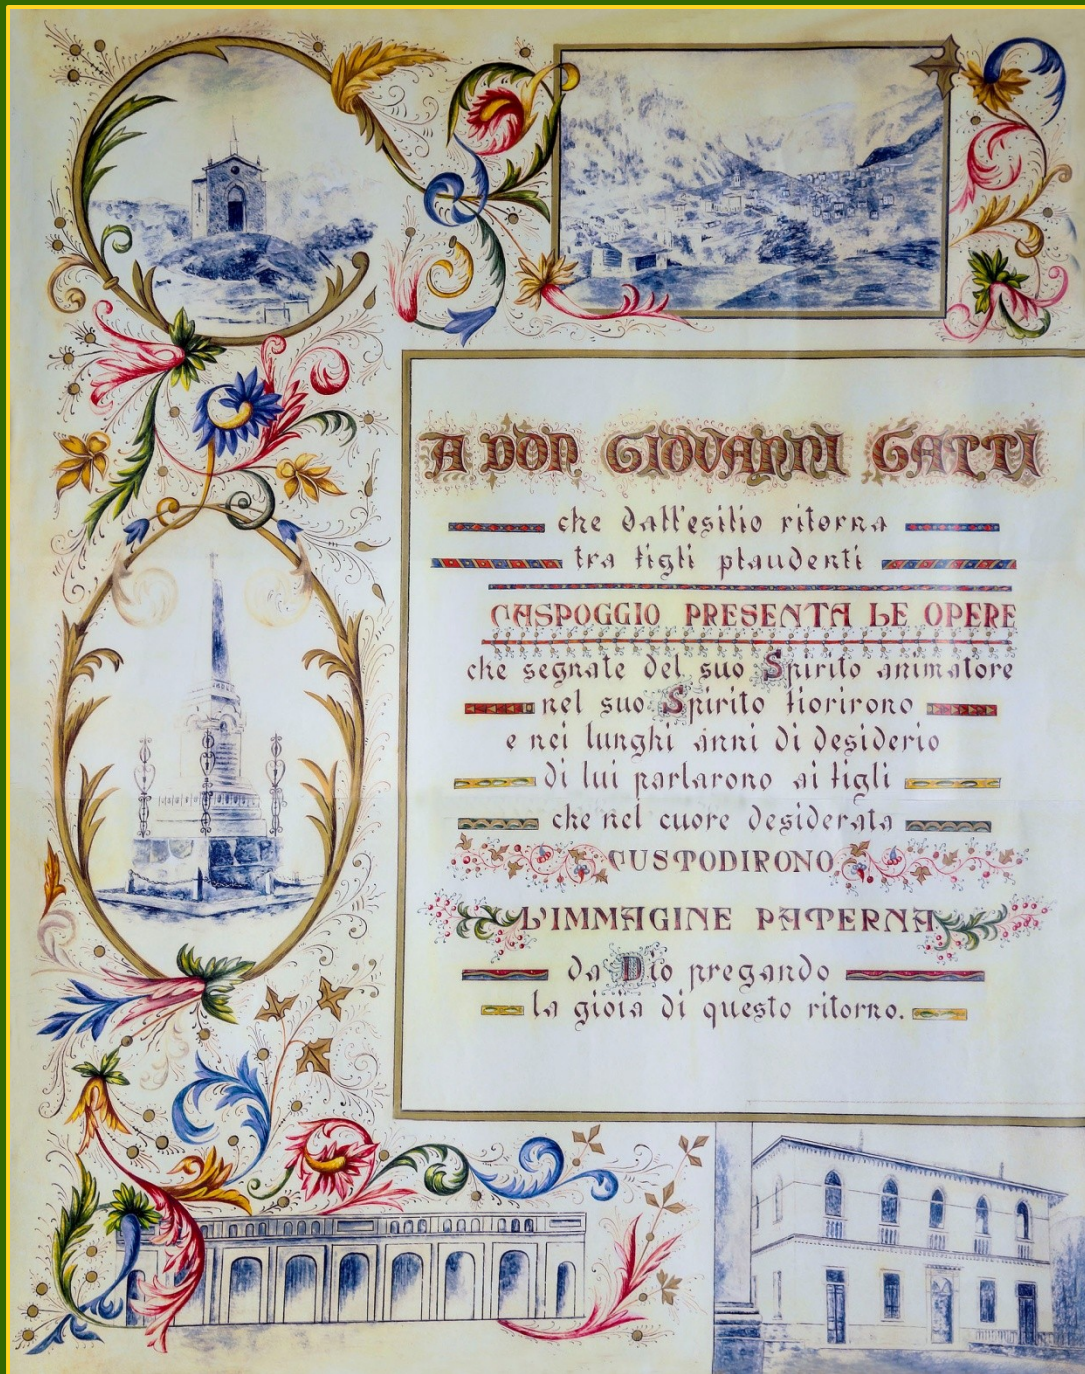 A DON GIOVANNI GATTI
che dall'esilio ritorna
tra figli plaudenti
CASPOGGIO PRESENTA LE OPERE
che segnate del suo Spirito animatore
nel suo Spirito fiorirono
e nei lunghi anni di desiderio
di lui parlarono ai figli
che nel cuore desiderata
CUSTODIRONO
L'IMMAGINE PATERNA
da Dio pregando
la gioia di questo ritorno.